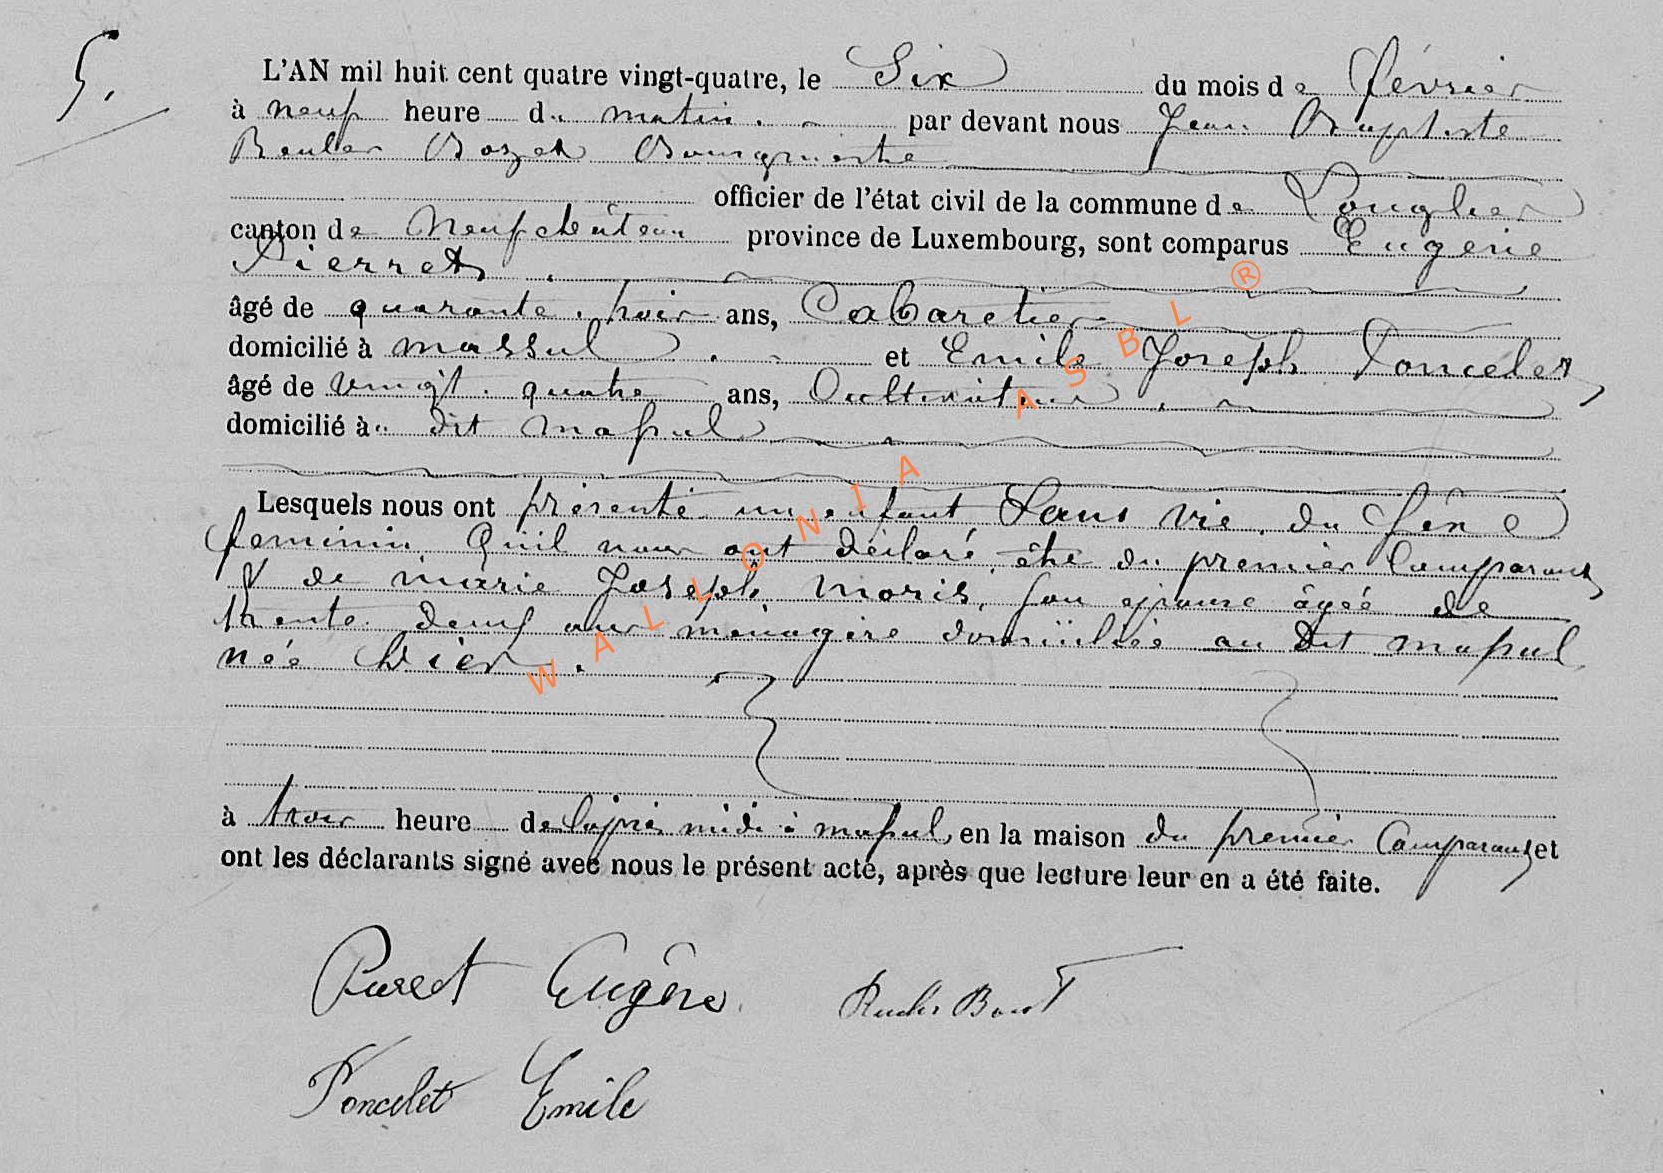 5.
L'AN mil huit cent quatre vingt-quatre, le Six du mois de février
à neuf heure du matin. par devant nous Jean Baptiste
Reuler Bozet Bourgmestre
officier de l'état civil de la commune de Longlier
canton de Neufchâteau province de Luxembourg, sont comparus Eugène
Pierret
âgé de quarante. trois ans, Cabaretier
domicilié à Massul et Emile Joseph Poncelet,
âgé de vingt. quatre ans, Cultivateur
domicilié au dit Massul
Lesquels nous ont présenté un enfant Sans vie du sexe
feminin. Qu'il nous ont déclaré être du premier Comparant
& de marie Joseph Moris, son épouse âgée de
trente. neuf ans ménagère domiciliée au dit massul
née hier.
à trois heure de l'après midi à massul, en la maison du premier Comparant, et
ont les déclarants signé avec nous le présent acte, après que lecture leur en a été faite.
Pierret Eugène. Reuler Bozet
Poncelet Emile
WALLONIA ASBL ®